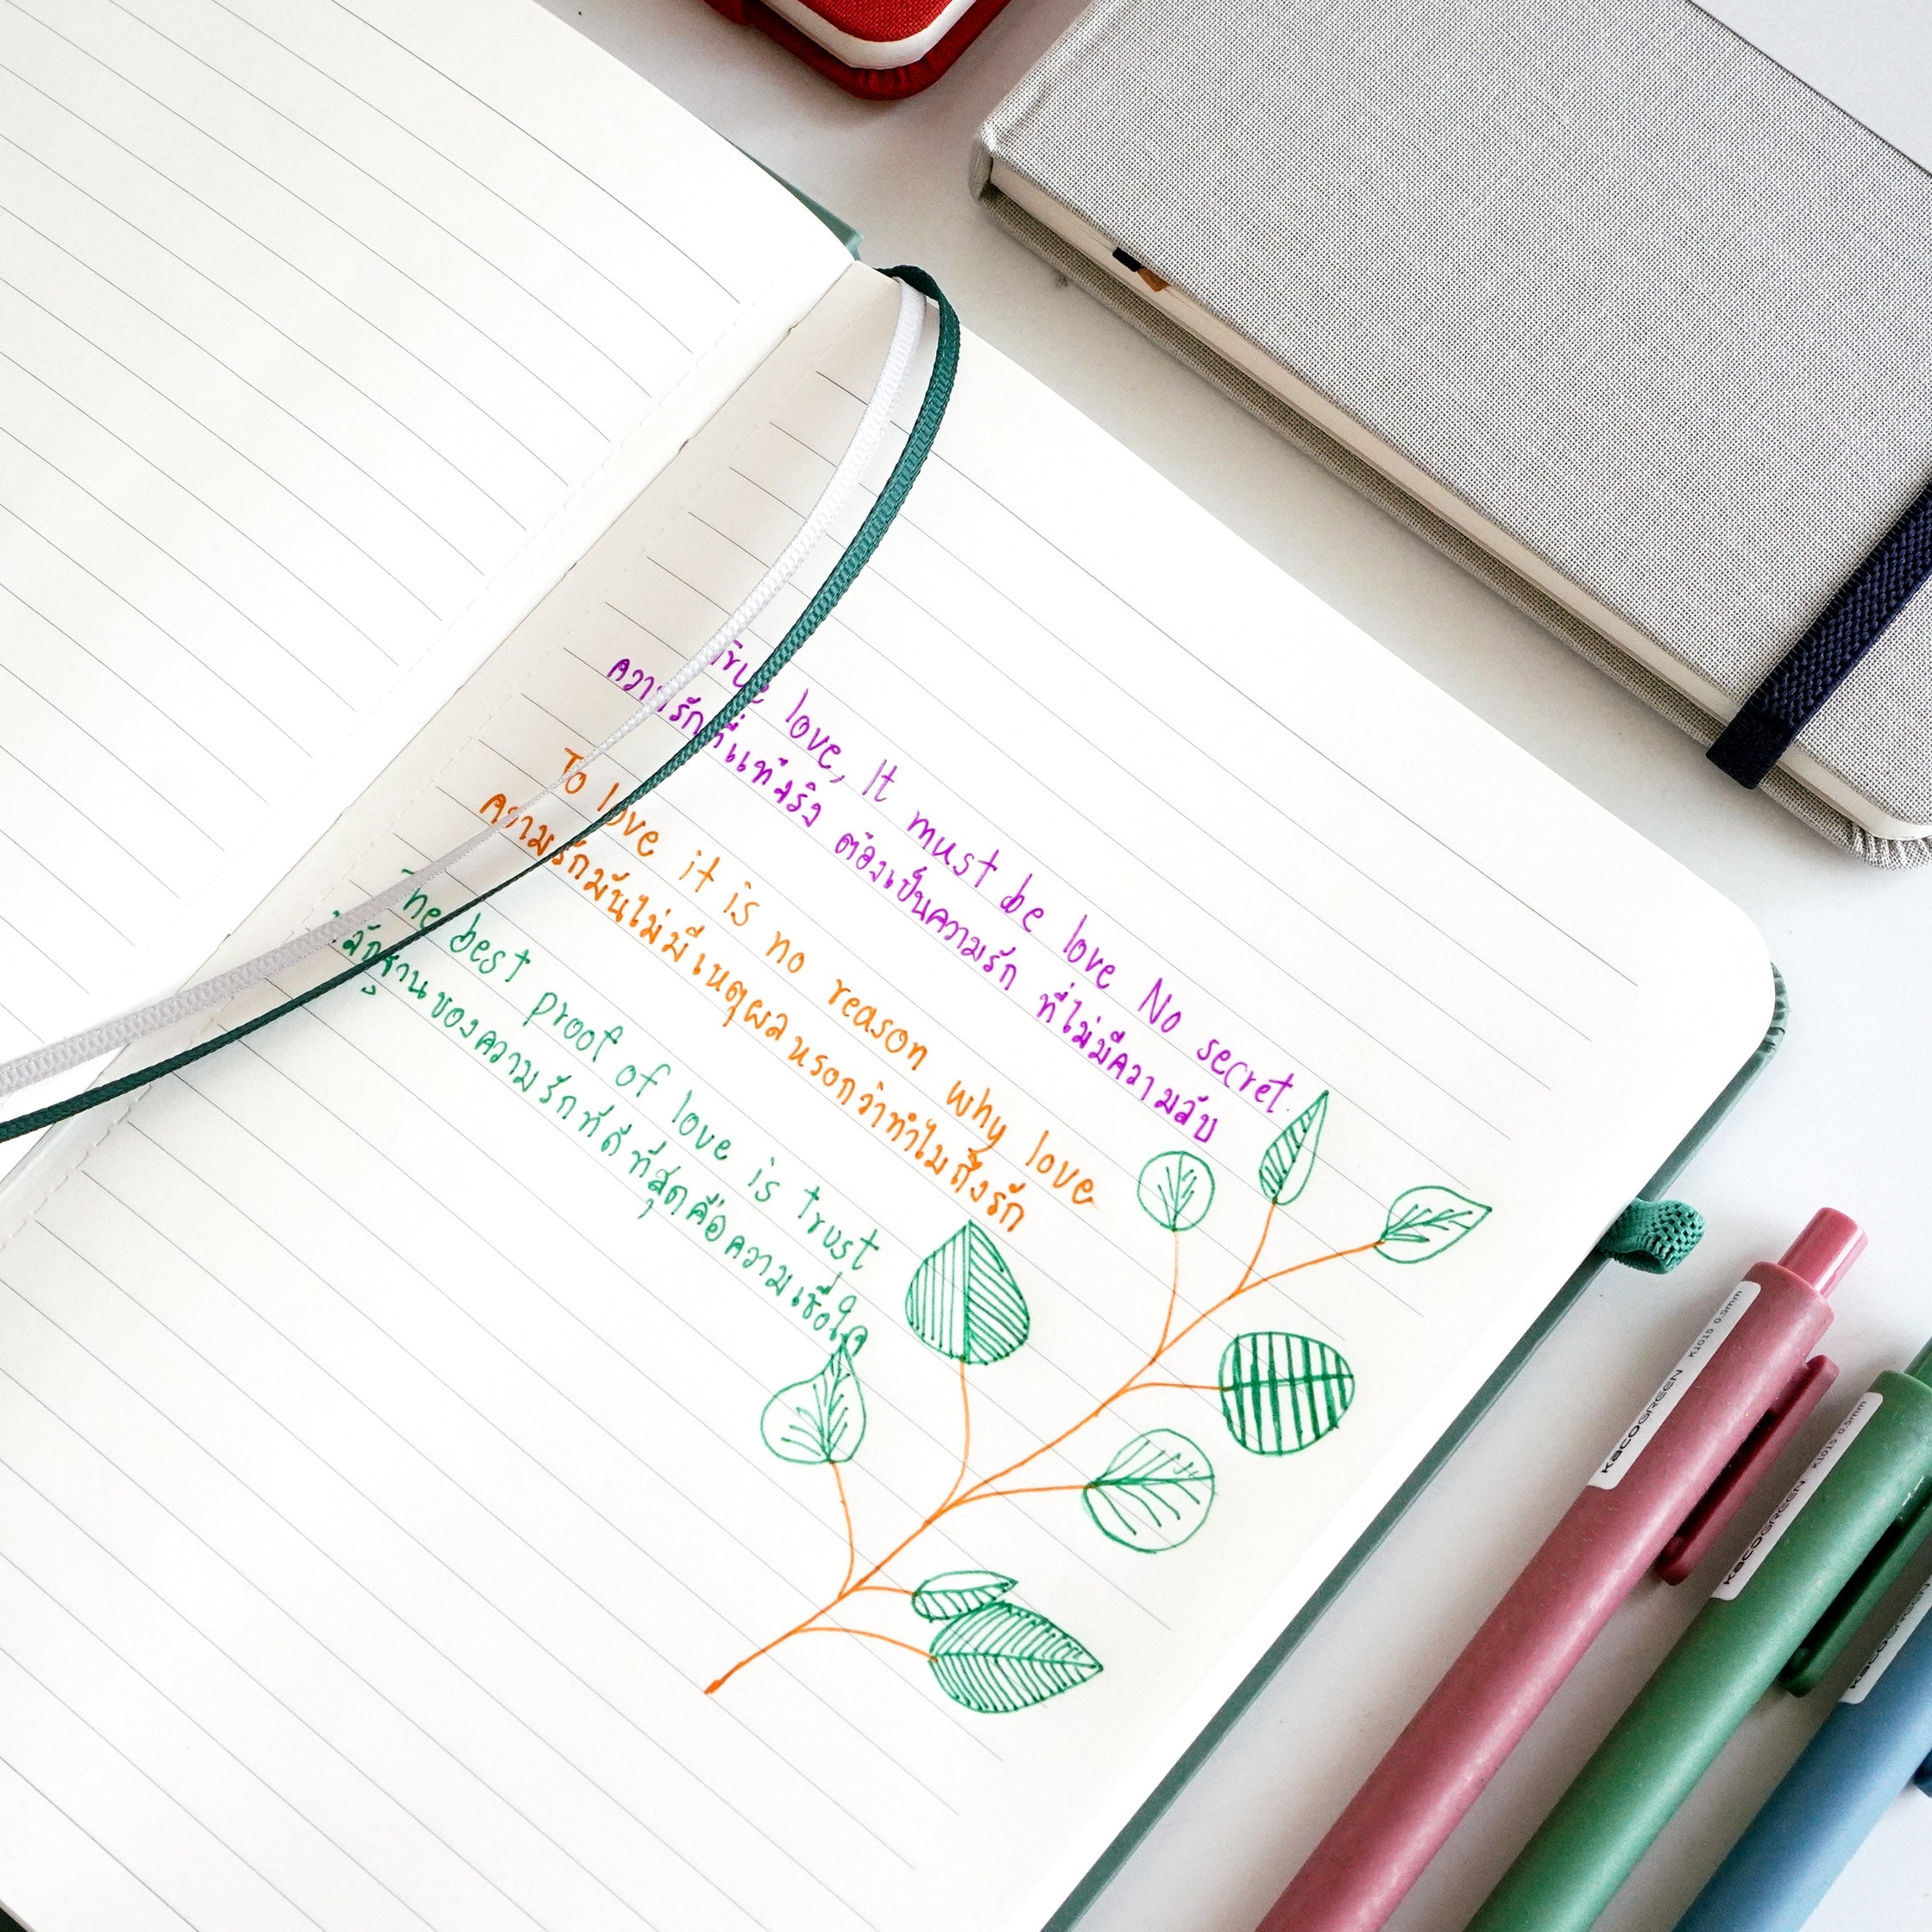 True love, It must be love No secret.
ความรักที่แท้จริง ต้องเป็นความรัก ที่ไม่มีความลับ
To love it is no reason why love
ความรักมันไม่มีเหตุผลหรอกว่าทำไมถึงรัก
The best proof of love is trust
หลักฐานของความรักที่ดีที่สุดคือความเชื่อใจ
KACOGREEN K1015 0.5mm
KACOGREEN K1015 0.5mm
KACOGREEN